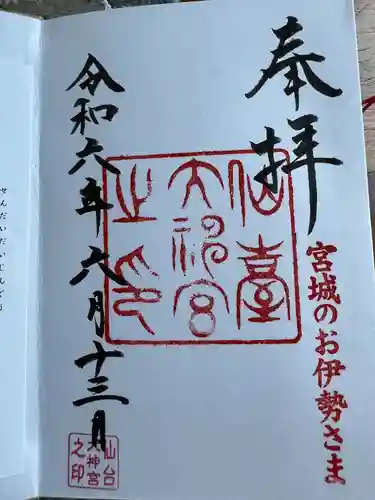 奉拝
宮城のお伊勢さま
仙臺
大神宮
之印
令和六年六月十三日
仙台
大神宮
之印
せんだいだいじんぐう